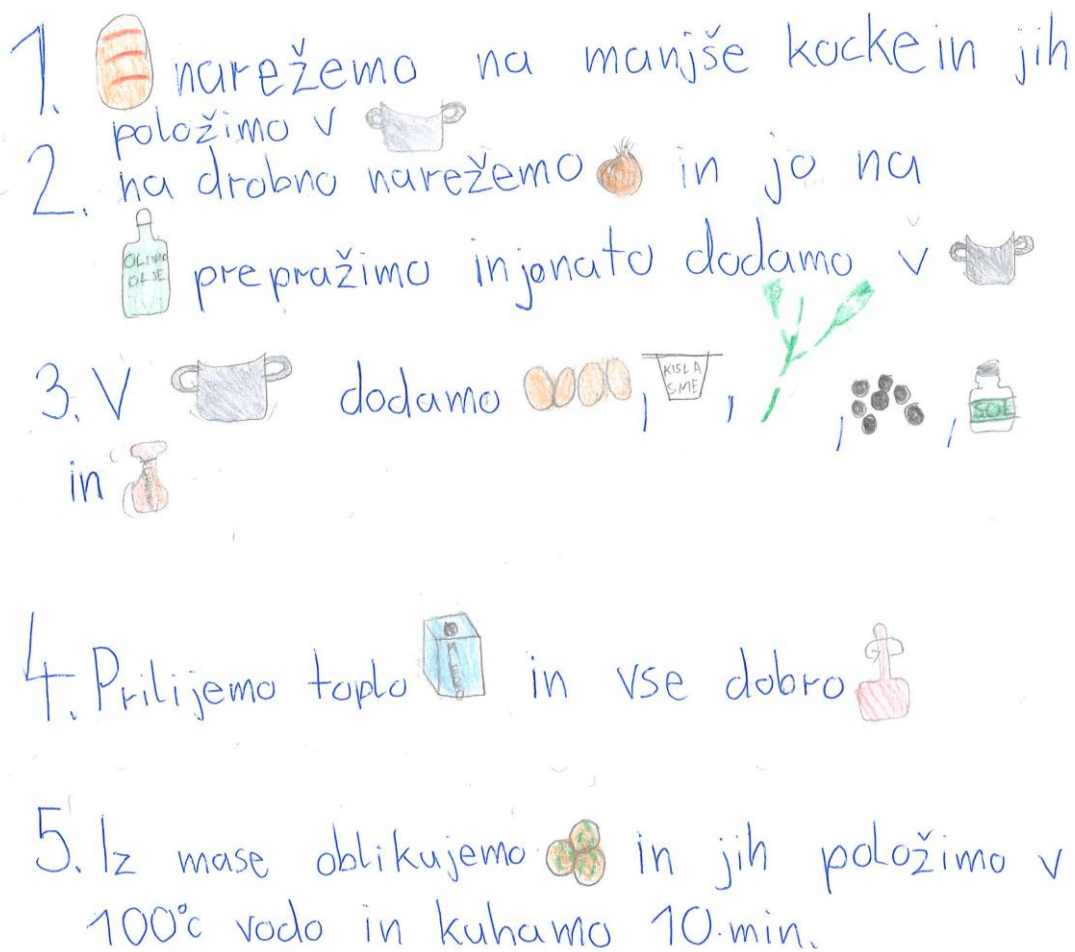 1. narežemo na manjše kocke in jih
položimo v
2. na drobno narežemo in jo na
OLIVNO
OLJE
prepražimo in jo nato dodamo v
3. V dodamo , KISLA
SME , , ,
SOL
in
4. Prilijemo toplo in vse dobro
5. Iz mase oblikujemo in jih položimo v
100°c vodo in kuhamo 10.min.